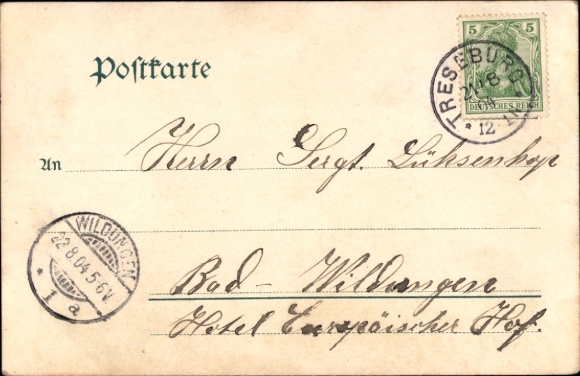 Postkarte
5 5
DEUTSCHES REICH
TRESEBURG
21 8
* 12
An Herrn Sergt. Lühsenhop
WILDUNGEN
22.8.04.5-6N.
* 1 a
Bad - Wildungen
Hotel Europäischer Hof.